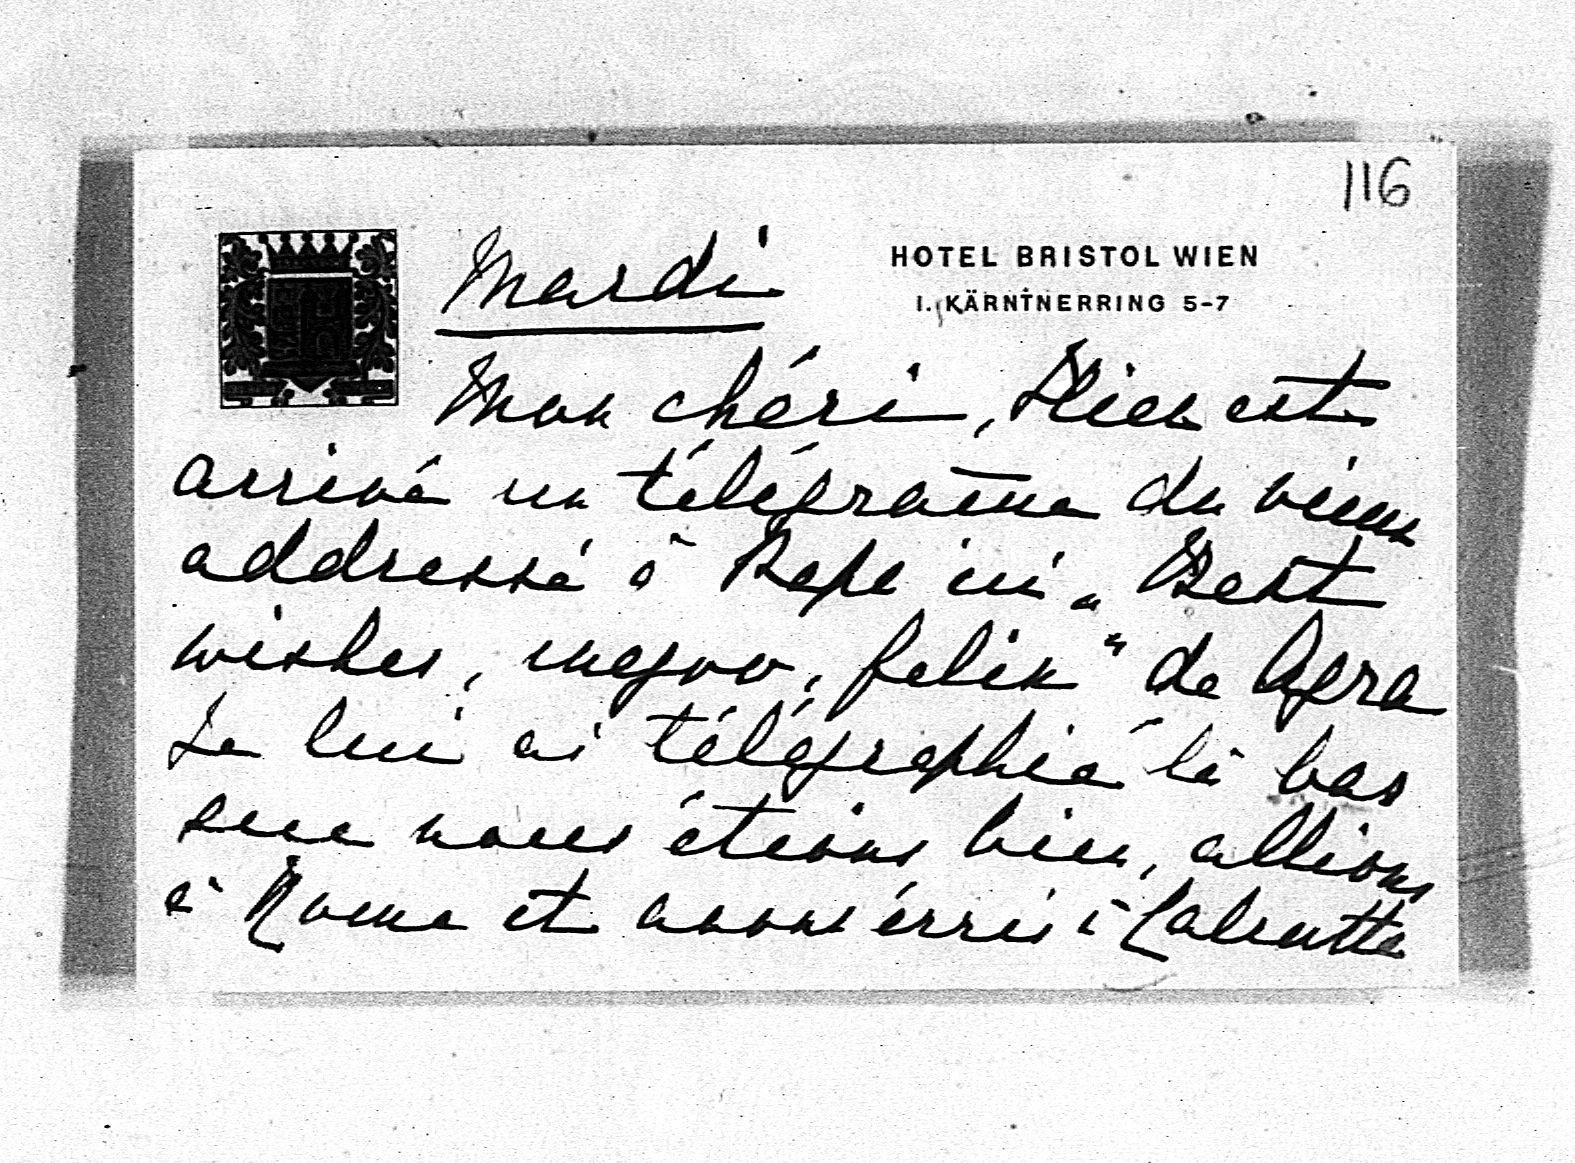 116
HOTEL BRISTOL WIEN
I., KÄRNTNERRING 5-7
Mardi
Mon chéri, Hier est
arrivé un télégrame du vieux
addressé à Bepe ici „Best
wishes, , felix" de Agra
Je lui ai télégraphié là bas
que nous étions bien, allions
à Rome et avons érris à Calcutta